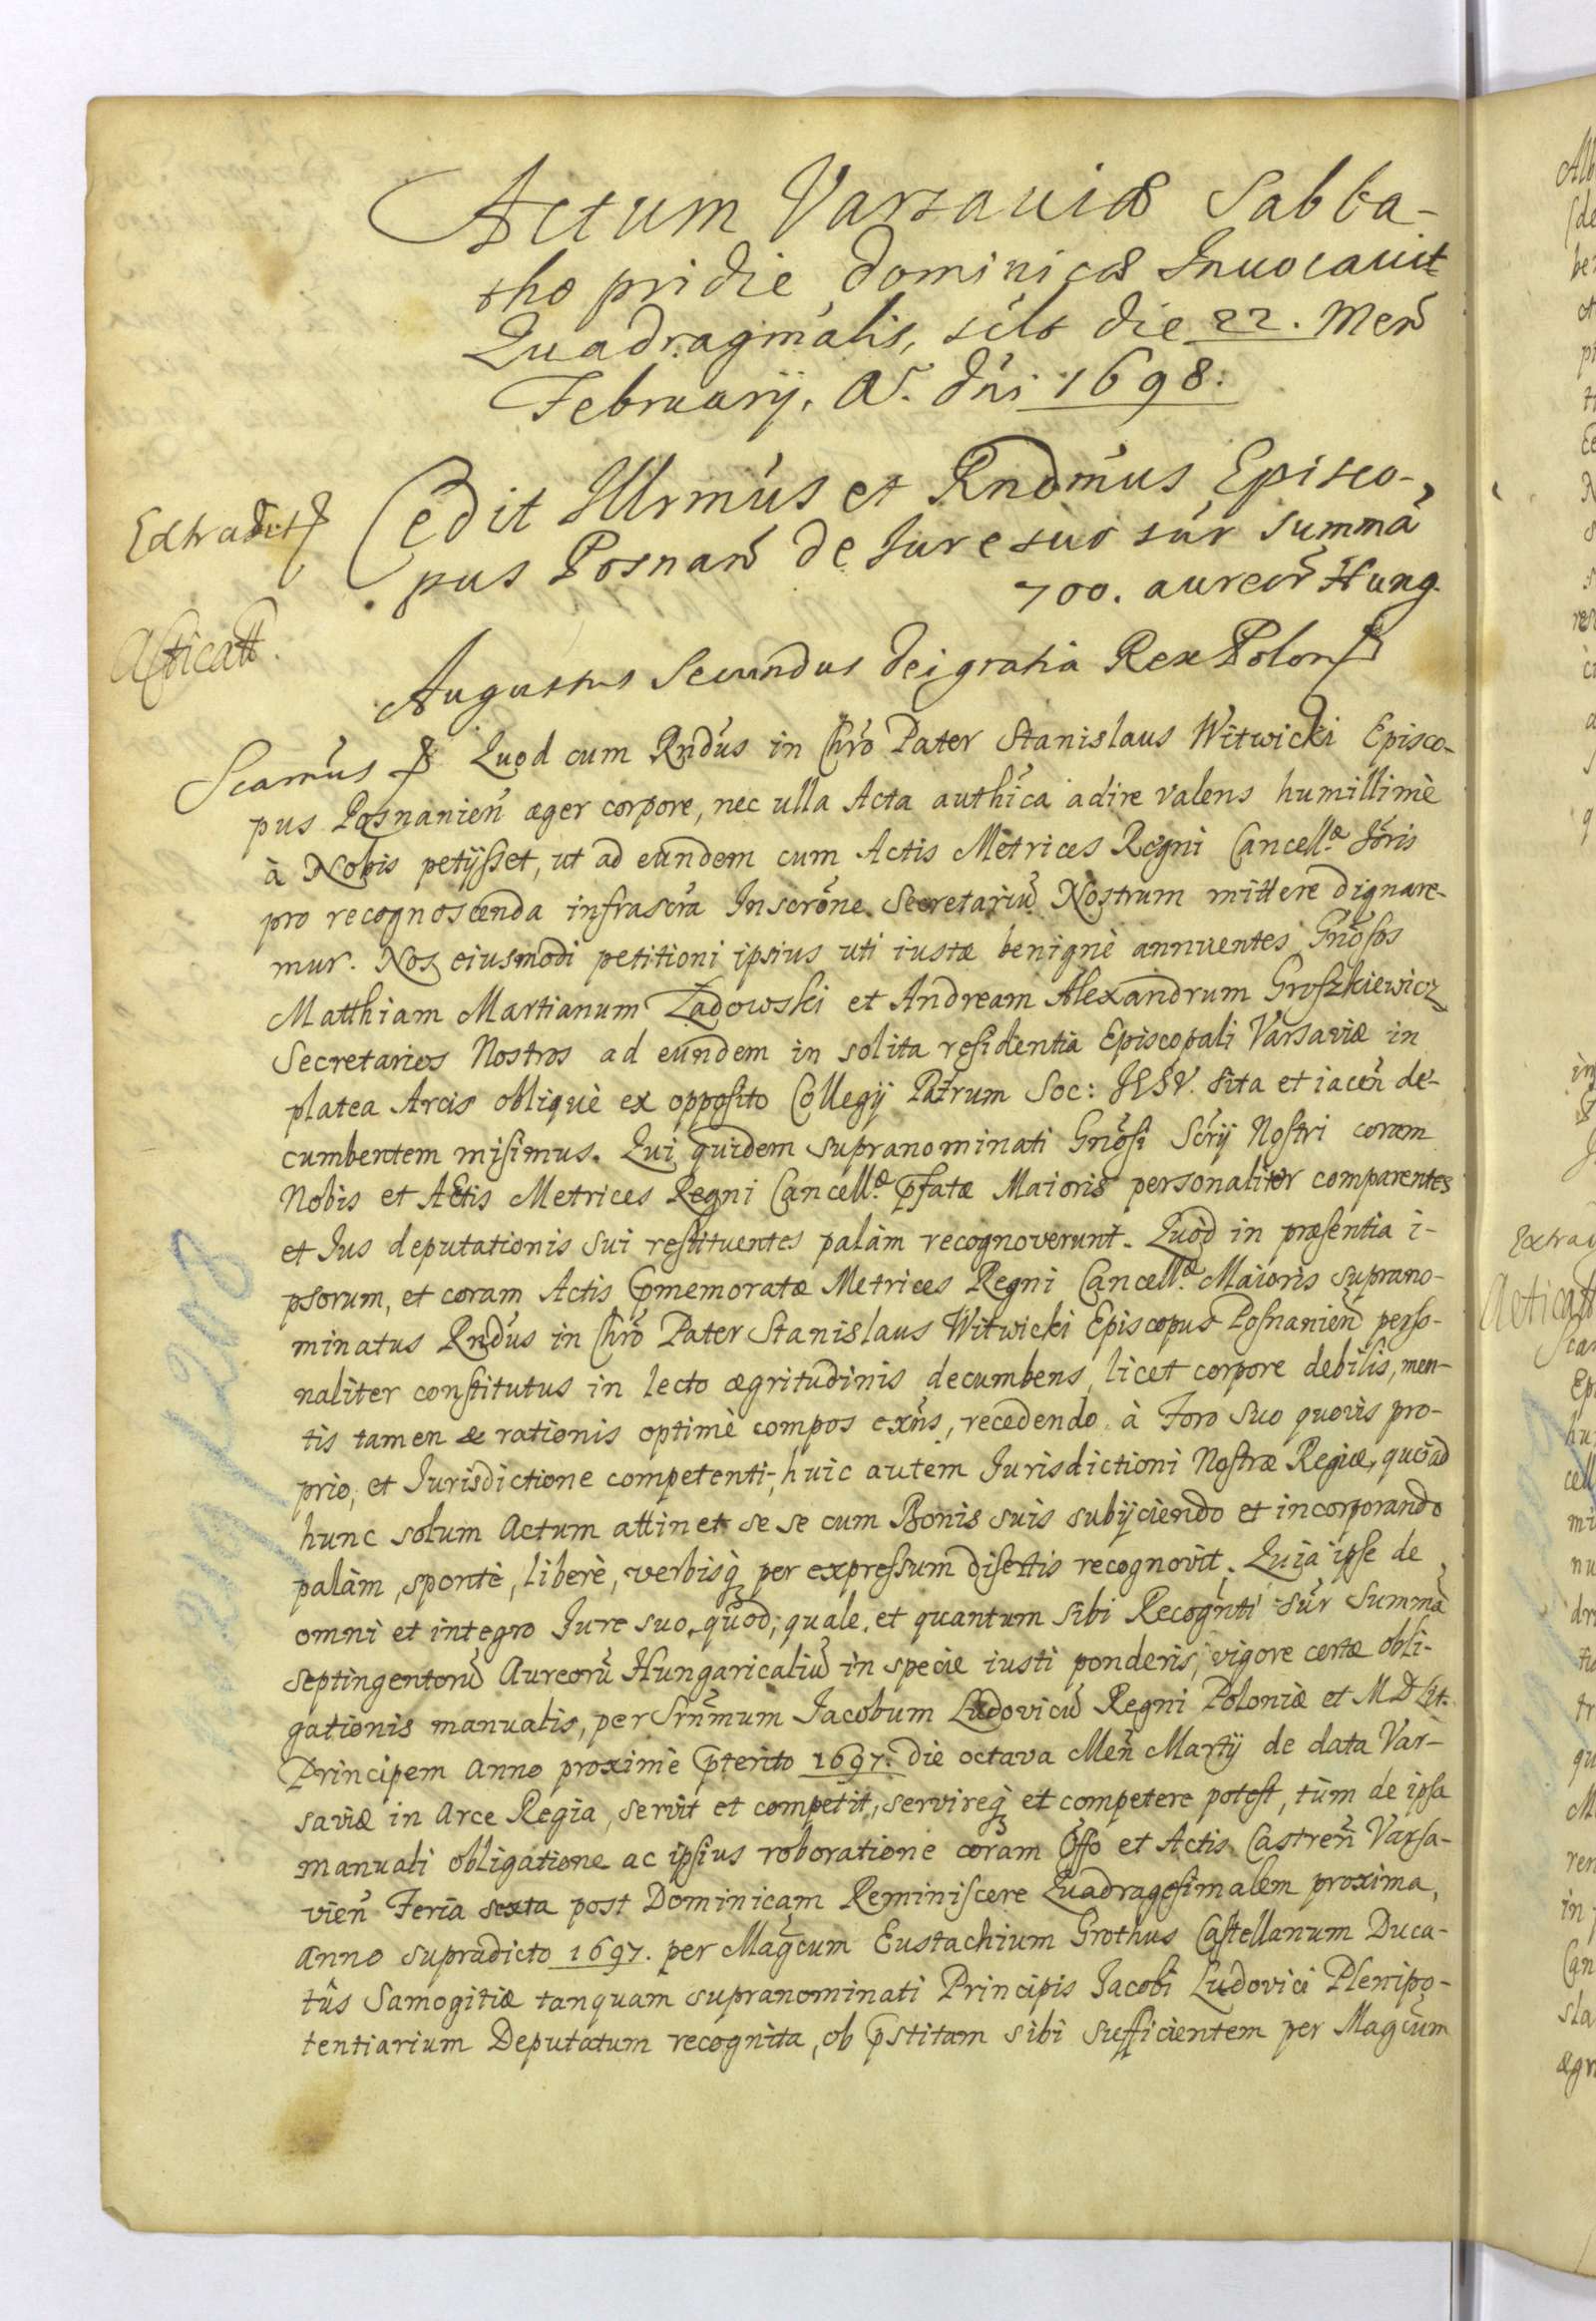 Actum Varsauiæ Sabba-
tho pridie Dominicæ Inuocauit
Quadragmalis, scilt die 22. Men̄
Februarij, A. Dn̄i 1698.
Extradit
Cedit Illrmūs et Rndm̄us Episco-
pus Posnan̄ de Iure suo sūr Summā
700. aureor̄ Hung.
Acticatt.
Augustus Secundus Dei gratia Rex Polon
Scamūs Quod cum Rndūs in Chrō Pater Stanislaus Witwicki Episco-
pus Posnanien̄ æger corpore, nec ulla Acta authīca adire valens humillimè
à Nobis petijsset, ut ad eundem cum Actis Metrices Regni Cancell.æ Iōris
pro recognoscenda infrascrā Inscrōne Secretariū Nostrum mittere dignare-
mur. Nos eiusmodi petitioni ipsius uti iustæ benignè annuentes Gnōsos
Matthiam Martianum Ładowski et Andream Alexandrum Groszkiewicz
Secretarios Nostros ad eundem in solita residentia Episcopali Varsaviæ in
platea Arcis obliquè ex opposito Collegij Patrum Soc: IESV. sita et iacen̄ de-
cumbentem misimus. Qui quidem supranominati Gnōsi Scrij Nostri coram
Nobis et Actis Metrices Regni Cancell.æ p̄fatæ Maioris personaliter comparentes
et Ius deputationis sui restituentes palàm recognoverunt. Quòd in præsentia i-
psorum, et coram Actis p̄memoratæ Metrices Regni Cancell.æ Maioris suprano-
minatus Rndūs in Chrō Pater Stanislaus Witwicki Episcopus Posnanien̄ perso-
naliter constitutus in lecto ægritudinis decumbens, licet corpore debilis, men-
tis tamen & rationis optimè compos exn̄s, recedendo à Foro suo quovis pro-
prio, et Iurisdictione competenti, huic autem Iurisdictioni Nostræ Regiæ, quòad
hunc solum Actum attinet se se cum Bonis suis subijciendo et incorporando
palàm, spontè, liberè, verbisq; per expressum disertis recognovit. Quia ipse de
omni et integro Iure suo, quod, quale, et quantum sibi Recogn̄ti sūr Summā
Septingentorū Aureorū Hungaricaliū in specie iusti ponderis, vigore certæ obli-
gationis manualis, per Srn̄mum Jacobum Ludovicū Regni Poloniæ et M D Lit.
Principem Anno proximè p̄terito 1697. die octava Men̄ Martij de data Var-
saviæ in Arce Regia, servit et competit, servireq; et competere potest, tùm de ipsa
manuali obligatione ac ipsius roboratione coram Offo et Actis Castren̄ Varsa-
vien̄ Feria sexta post Dominicam Reminiscere Quadragesimalem proxima,
anno supradicto 1697. per Magcum Eustachium Grothus Castellanum Duca-
tûs Samogitiæ tanquam supranominati Principis Jacobi Ludovici Plenipo-
tentiarium Deputatum recognita, ob p̄stitam sibi sufficientem per Magcūm